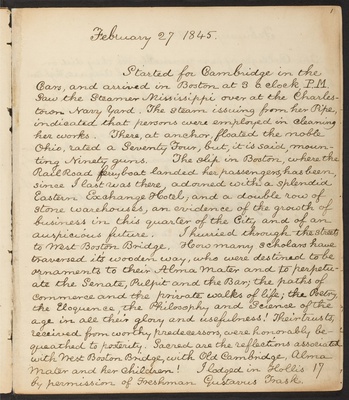 February 27 1845.
Started for Cambridge in the
Cars, and arrived in Boston at 3 o'clock P.M.
Saw the Steamer Mississippi over at the Charles-
town Navy Yard. The steam issuing from her Pipe
indicated that persons were employed in cleaning
her works. There, at anchor, floated the noble
Ohio, rated a Seventy Four, but, it is said, moun-
ting Ninety guns. The slip in Boston, where the
Rail Road ferry boat landed her passengers, has been,
since I last was there, adorned with a splendid
Eastern Exchange Hotel, and a double row of
Stone warehouses, an evidence of the growth of
business in this quarter of the City, and of an
auspicious future. I hurried through the streets
to West Boston Bridge. How many scholars have
traversed its wooden way, who were destined to be
ornaments to their Alma Mater and to perpetu-
ate the Senate, Pulpit and the Bar; the paths of
Commerce and the private walks of life; the Poetry,
the Eloquence, the Philosophy and Science of the
age in all their glory and usefulness! Their trusts,
received from worthy predecessors, were honorably be-
queathed to posterity. Sacred are the reflections associated
with West Boston Bridge, with Old Cambridge, Alma
Mater and her Children! I lodged in Hollis 17
by permission of Freshman Gustavus Trask.